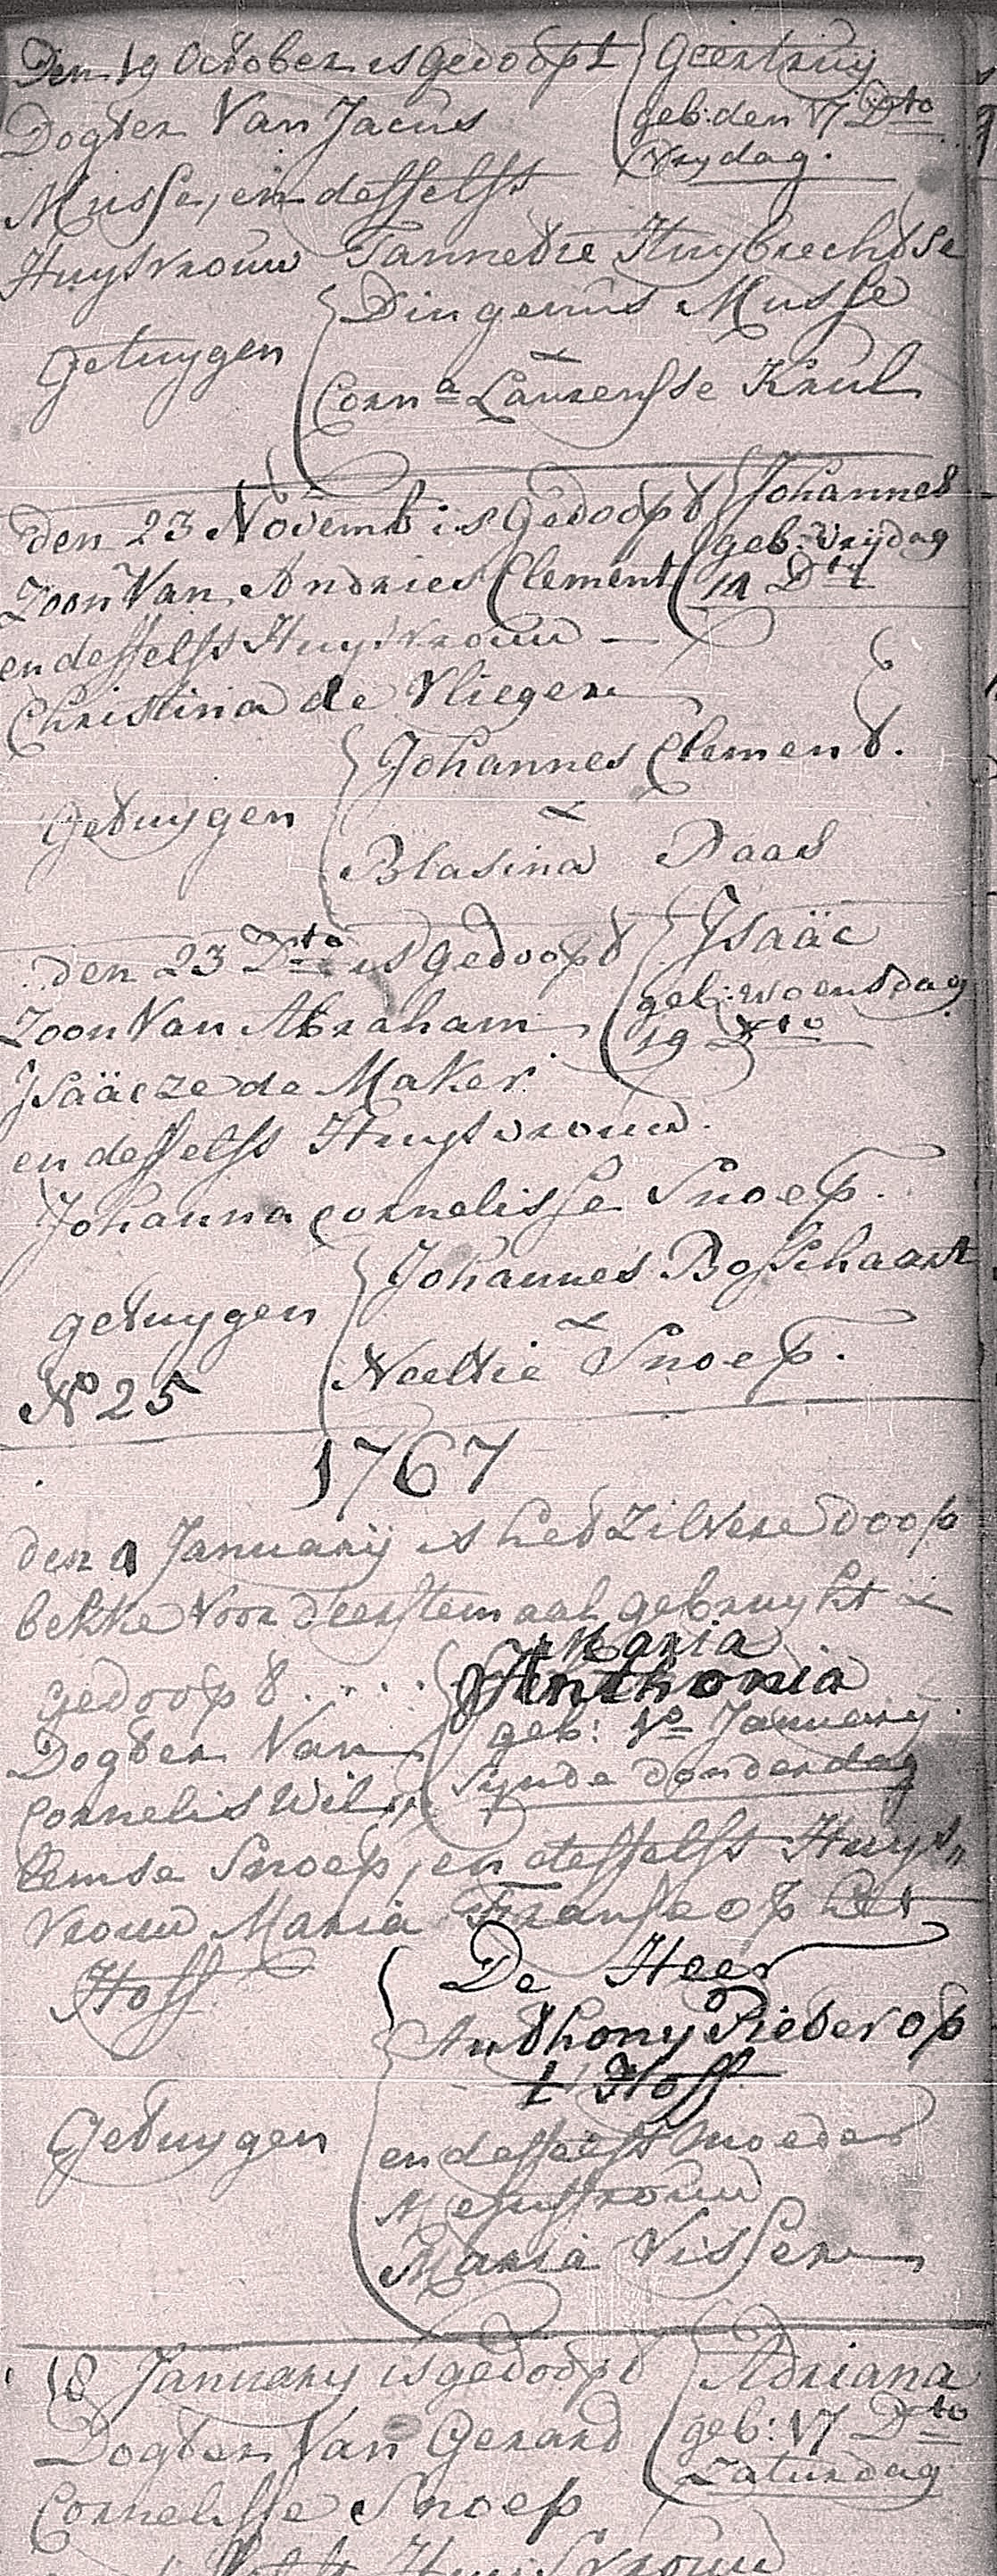 Den 19 October is gedoopt { Geertruy
Dogter Van Jacus geb: den 17 Dto
Vrydag.
Musse, en desselfs
Huysvrouw Tannetie Huybrechtse
Dingenus Musse
Getuygen &
Corna Laurensse Krul
den 23 Novemb is Gedoopt { Johannes
geb: Vrijdag
Zoon Van Andries Clement 14 Dto
en desselfs Huysvrouw —
Christina de Vlieger
Johannes Clement.
Getuygen &
Blasina Daas
den 23 Dto is gedoopt { Jsaäc
geb: woensdag
Zoon Van Abraham 19 Dto
Jsaäcze de Maker
en desselfs Huysvrouw.
Johanna Cornelisse Snoep.
Johannes Bosschaart
getuygen &
Neeltie Snoep.
No 25
1767
den 1 Januarij is het Zilvere doop
bekke voor d'eerstemaal gebruykt &
Maria
gedoopt .... { Anthonia
Dogter Van geb: 1o January
Cornelis Wil,, Synde donderdag
lemse Snoep, en desselfs Huys,,
vrouw Maria Franse op het
Hoff
De Heer
Anthony Pieter op
t' Hoff
Getuygen en desselfs moeder
Mejuffrouw
Maria Visser
18 January is gedoopt { Adriana
Dogter Van Gerard geb: 17 Dto
Zaturdag
Cornelisse Snoep
Huysvrouw